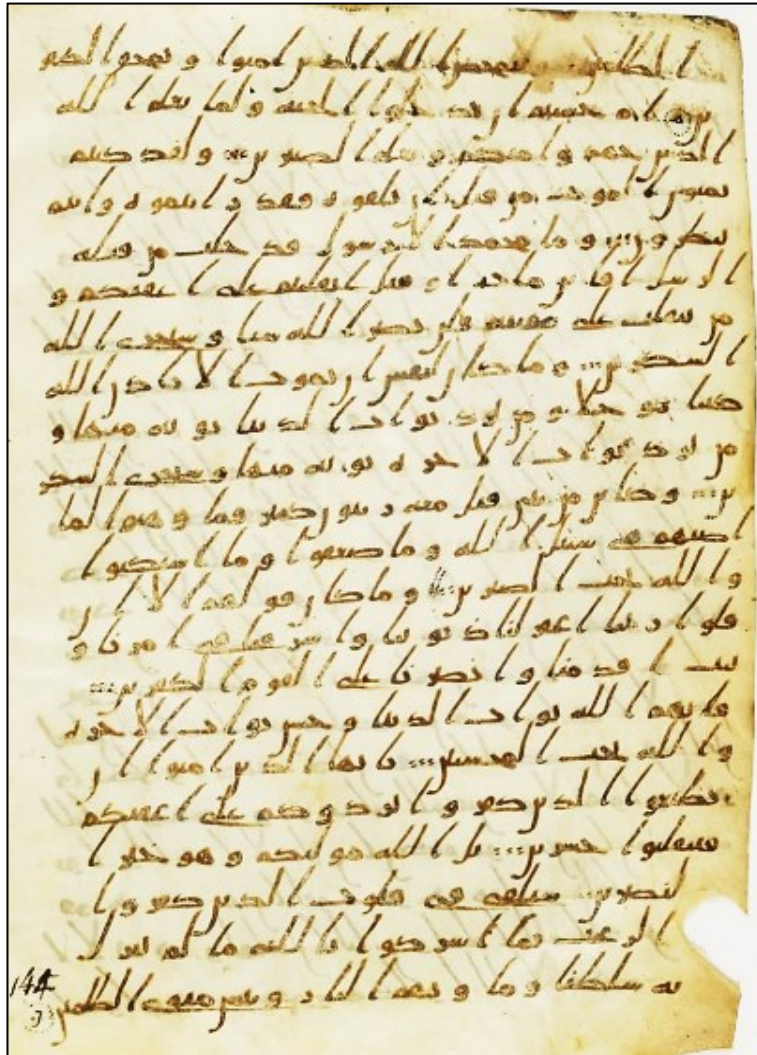 الظلمين وليمحص الله الذين امنوا ويمحق الكفر
ين ام حسبتم ان تدخلوا الجنة ولما يعلم الله
الذين جهدوا منكم ويعلم الصبرين ولقد كنتم
تمنون الموت من قبل ان تلقوه فقد رايتموه وانتم
تنظرون وما محمد الا رسول قد خلت من قبله
الرسل افاين مات او قتل انقلبتم على اعقبكم و
من ينقلب على عقبيه فلن يضر الله شيا وسيجزي الله
الشكرين وما كان لنفس ان تموت الا باذن الله
كتبا موجلا ومن يرد ثواب الدنيا نوته منها و
من يرد ثواب الاخرة نوته منها وسنجزي الشكر
ين وكاين من نبي قتل معه ربيون كثير فما وهنوا لما
اصبهم في سبيل الله وما ضعفوا وما استكنوا
والله يحب الصبرين وما كان قولهم الا ان
قلوا ربنا اغفر لنا ذنوبنا واسرفنا في امرنا و
ثبت اقدمنا وانصرنا على القوم الكفرين
فاتيهم الله ثواب الدنيا وحسن ثواب الاخرة
والله يحب المحسنين يايها الذين امنوا ان
تطيعوا الذين كفروا يردوكم على اعقبكم
فتنقلبوا خسرين بل الله موليكم وهو خير ا
لنصرين سنلقي في قلوب الذين كفروا
الرعب بما اشركوا بالله ما لم ينزل
به سلطنا وماويهم النار وبئس مثوى الظلمين
144